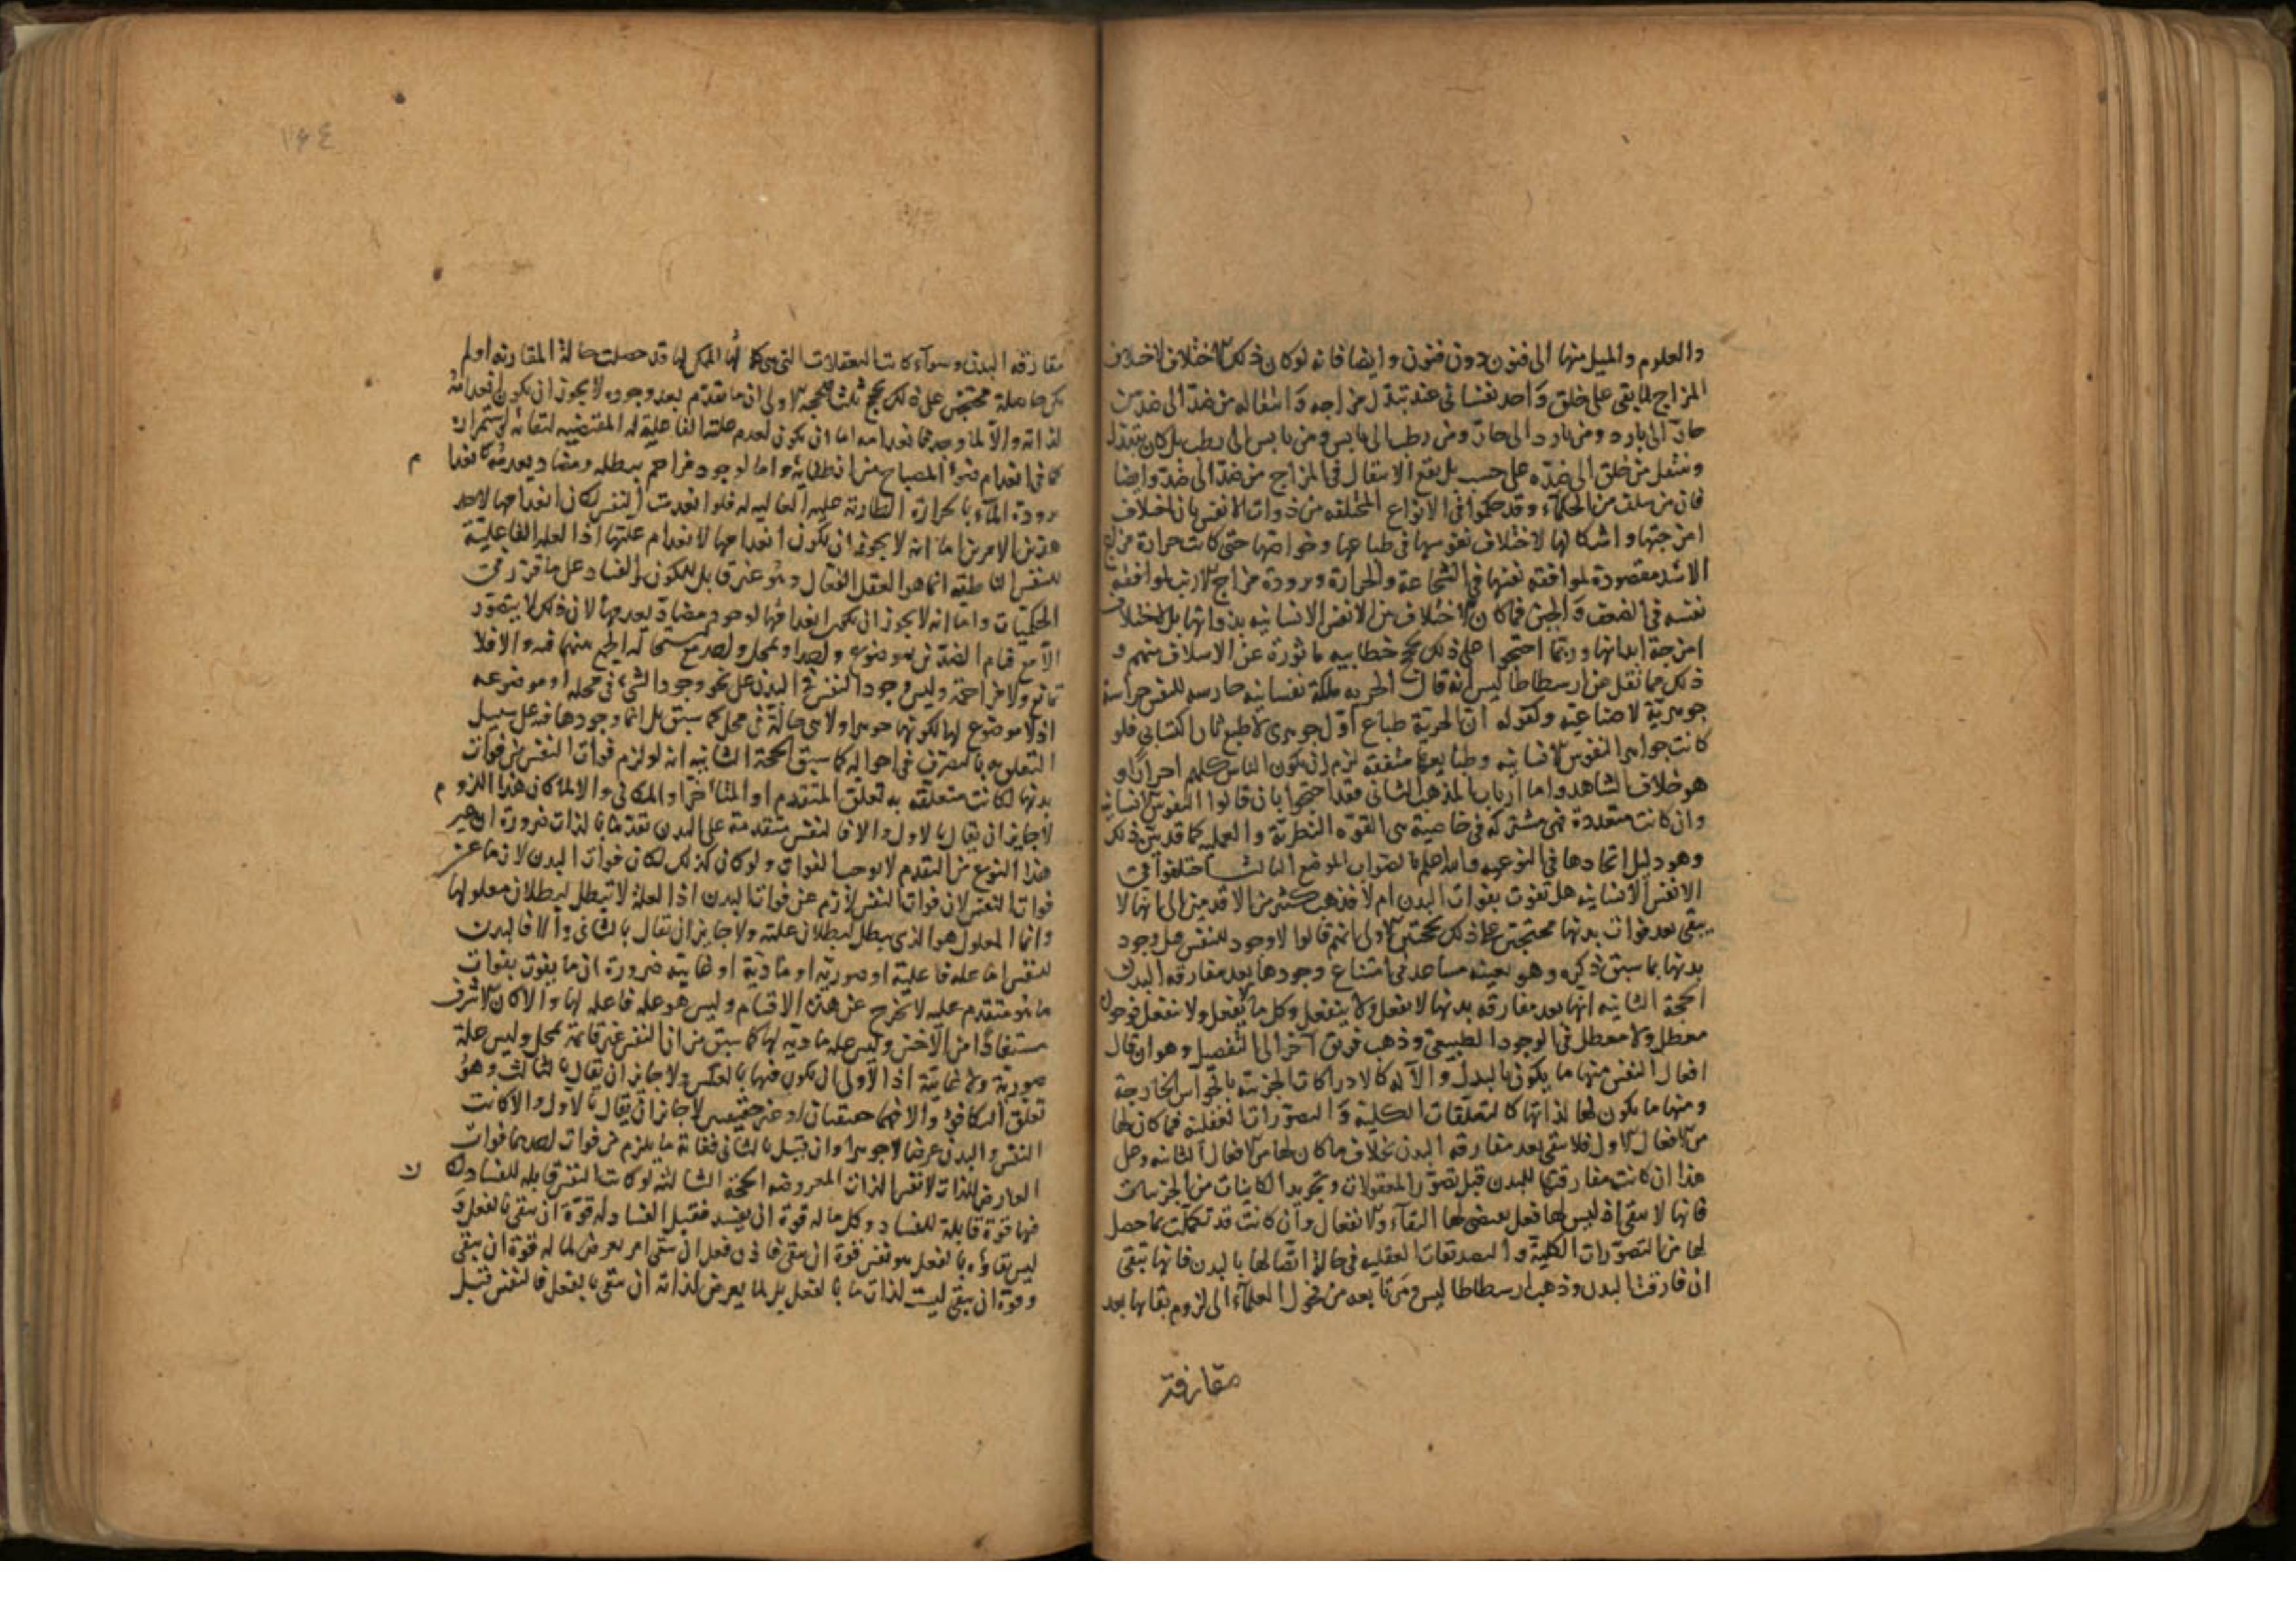 والعلوم والميل منها الى فنون دون فنون وايضا فانه لوكان ذلك لاختلاف
المزاج لما بقى على خلق واحد نفسانى عند تبدل مزاجه وانتقاله من ضد الى ضد من
حار الى بارد ومن بارد الى حار ومن رطب الى يابس ومن يابس الى رطب بل كان يتبدل
وينتقل من خلق الى ضده على حسب الانتقال فى المزاج من ضد الى ضد وايضا
فان من سلف من الحكماء وقد حكموا فى الانواع المختلفه من ذوات الانفس بان اختلاف
امزجتها واشكالها لاختلاف نفوسها فى طباعها وخواصها حتى كانت حرارة مزاج
الاسد مقصودة لموافقه نفسها فى الشجاعة والحرارة وبرودة مزاج الارنب لموافقه
نفسه فى الضعف والجبن فما كان الاختلاف بين الانفس الانسانيه بذواتها بل لاختلاف
امزجة ابدانها وربما احتجوا على ذلك بحجج خطابيه ماثورة عن الاسلاف منهم و
ذلك مما نقل عن ارسطاطاليس انه قال الحريه ملكة نفسانيه حارسه للنفس حراسة
جوهرية لا صناعيه وكقوله ان الحرية طباع اول جوهرى لا طبع ثان اكتسابى فلو
كانت جواهر النفوس الانسانيه وطبايعها متفقه لزم ان يكون الناس كلهم احرارا او
هو خلاف المشاهد واما ارباب المذهب الثانى فقد احتجوا بان قالوا النفوس الانسانيه
وان كانت متعددة فهى مشتركه فى خاصية هى القوه النظرية والعمليه كما قد بين ذلك
وهو دليل اتحادها فى النوعيه والله اعلم بالصواب الموضع الثالث اختلفوا فى
الانفس الانسانيه هل تفوت بفوات البدن ام لا فذهب كثير من الاقدمين الى انها لا
يبقى بعد فوات بدنها محتجين على ذلك بحجتين الاولى انهم قالوا لا وجود للنفس قبل وجود
بدنها بما سبق ذكره وهو بعينه مساعد فى امتناع وجودها بعد مفارقه البدن
الحجة الثانيه انها بعد مفارقه بدنها لا تفعل ولا ينفعل وكل ما لا يفعل ولا ينفعل فوجوده
معطل ولا معطل فى الوجود الطبيعى وذهب فريق آخر الى التفصيل وهو ان قال
افعال النفس منها ما يكون بالبدن والآله كالادراكات الجزئيه بالحواس الخارجة
ومنها ما يكون لها لذاتها كالتعلقات الكليه والتصورات العقلية فما كان لها
من الافعال الاول فلا تبقى بعد مفارقه البدن بخلاف ما كان لها من الافعال الثانيه وعلى
هذا ان كانت مفارقتها للبدن قبل تصور المعقولات وتجريد الكليات من الجزئيات
فانها لا تبقى اذ ليس لها فعل يقتضى لها البقاء ولا انفعال وان كانت قد تكملت بما حصل
لها من التصورات الكلية والتصديقات العقليه فى حالة اتصالها بالبدن فانها تبقى
ان فارقت البدن وذهب ارسطاطاليس ومن تابعه من فحول العلماء الى لزوم بقائها بعد
مفارقة
١٦٤
مفارقه البدن وسواء كانت التعقلات التى هى كمالها الممكن لها قد حصلت حالة المقارنه او لم
يكن حاصلة محتجين على ذلك بحجج ثلث الحجه الاولى ان ما تقدم بعد وجوده لا يجوز ان يكون انعدامه
لذاته والا لما وجد فما انعدامه اما ان يكون لعدم علته الفاعليه له المقتضيه لبقائه واستمراره
كما فى انعدام ضوء المصباح عن انطفائه واما لوجود مزاحم يبطله ومضاد يعدمه كانعدام
برودة الماء بالحرارة الطارئه عليه الغالبه له فلو انعدمت النفس لكان انعدامها لاحد
هذين الامرين اما انه لا يجوز ان يكون انعدامها لانعدام علتها اذ العله الفاعلية
للنفس الناطقه انما هو العقل الفعال وهو غير قابل للكون والفساد على ما قرر فى
الحكميات واما انه لا يجوز ان يكون انعدامها لوجود مضاد يعدمها لان ذلك لا يتصور
الا مع قيام الضدين بموضوع واحد او بمحل واحد مع استحالة الجمع بينهما فيه والا فلا
تمانع ولا مزاحمة وليس وجود النفس فى البدن على نحو وجود الشىء فى محله او موضوعه
اذ لا موضوع لها لكونها جوهرا ولا هى حالة فى محل كما سبق بل انما وجودها فيه على سبيل
التعلق به بالتصرف فى احواله كما سبق الحجة الثانيه انه لو لزم فوات النفس من فوات
بدنها لكانت متعلقه به تعلق المتقدم او المتاخر او المكافى والا لما كان هذا اللزوم
لا جايز ان يقال بالاول والا فالنفس متقدمة على البدن تقدما بالذات ضرورة ان غير
هذا النوع من التقدم لا يوجب الفوات ولو كان كذلك لكان فوات البدن لازما عن
فوات النفس لان فوات النفس لازم عن فوات البدن اذ العلة لا تبطل لبطلان معلولها
وانما المعلول هو الذى يبطل لبطلان علته ولا جايز ان يقال بالثانى والا فالبدن
للنفس اما عله فاعليه او صوريه او ماديه او غائية ضرورة ان ما يفوت بفوات
ما هو متقدم عليه لا يخرج عن هذه الاقسام وليس هو عله فاعله لها والا لكان الاشرف
مستفادا من الاخس وليس عله ماديه لها كما سبق من ان النفس غير قائمة بمحل وليس علة
صورية ولا غائية اذ الاولى ان يكون فيها بالعكس ولا جايز ان يقال بالثالث وهو
تعلق التكافؤ والا فهما حقيقيان او غير حقيقيين لا جايز ان يقال بالاول والا كانت
النفس والبدن عرضا لا جوهرا وان قيل بالثانى فغاية ما يلزم من فوات احدهما فوات
العارض للذات لا نفس الذات المعروضه الحجة الثالثه لو كانت النفس قابله للفساد لكان
فيها قوة قابلة للفساد وكل ما له قوة ان يفسد فقبل الفساد له قوة ان يبقى بالفعل و
ليس بقاؤه بالفعل هو نفس قوة ان يبقى فاذن فعل ان يبقى امر يعرض لما له قوة ان يبقى
وقوة ان يبقى ليست لذات ما بالفعل بل لما يعرض لذاته ان يبقى بالفعل فالنفس قبل